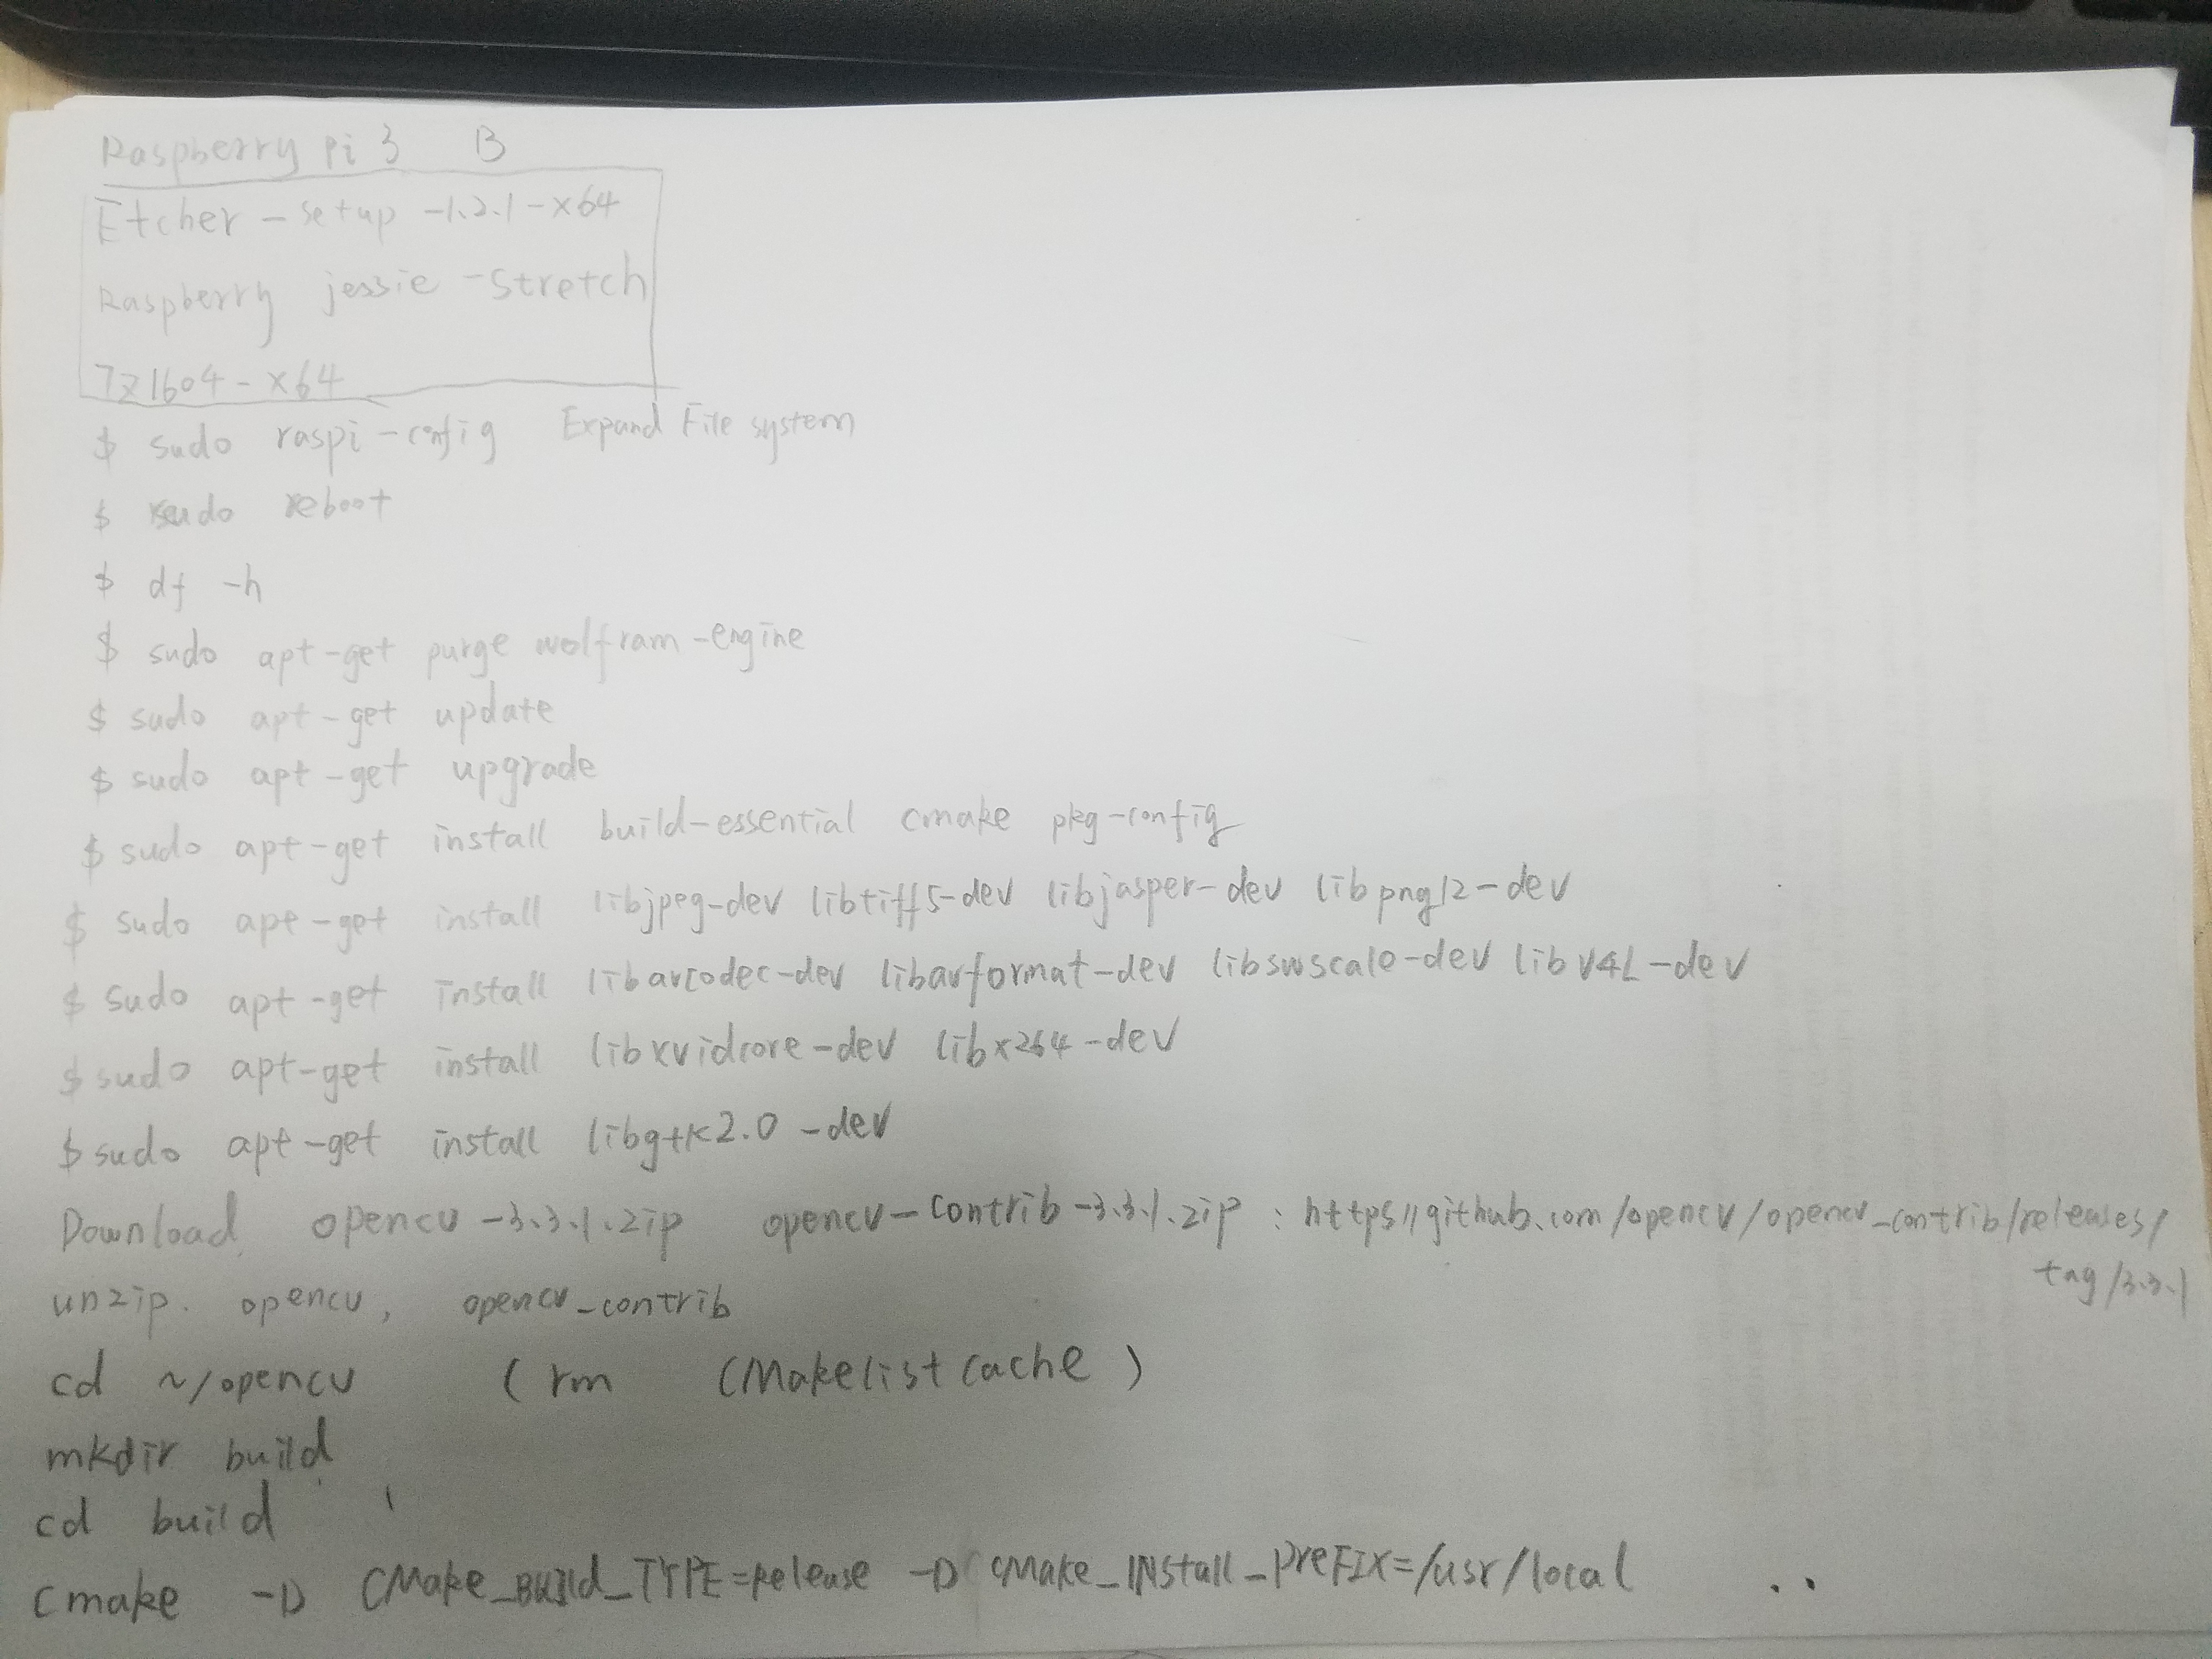 Raspberry Pi 3 B
Etcher - setup -1.2.1-x64
Raspberry jessie -Stretch
7z1604-x64
$ sudo raspi-config Expand File system
$ sudo reboot
$ df -h
$ sudo apt-get purge wolfram-engine
$ sudo apt-get update
$ sudo apt-get upgrade
$ sudo apt-get install build-essential cmake pkg-config
$ sudo apt-get install libjpeg-dev libtiff5-dev libjasper-dev libpng12-dev
$ sudo apt-get install libavcodec-dev libavformat-dev libswscale-dev libV4L-dev
$ sudo apt-get install libxvidcore-dev libx264-dev
$ sudo apt-get install libgtk2.0-dev
Download opencv-3.3.1.zip opencv-contrib-3.3.1.zip : https//github.com/opencv/opencv_contrib/releases/
tag/3.3.1
unzip. opencv, opencv_contrib
cd ~/opencv (rm CMakelistCache)
mkdir build
cd build
cmake -D CMake_BUILd_TYPE=Release -D CMake_INStall_PreFIX=/usr/local ..